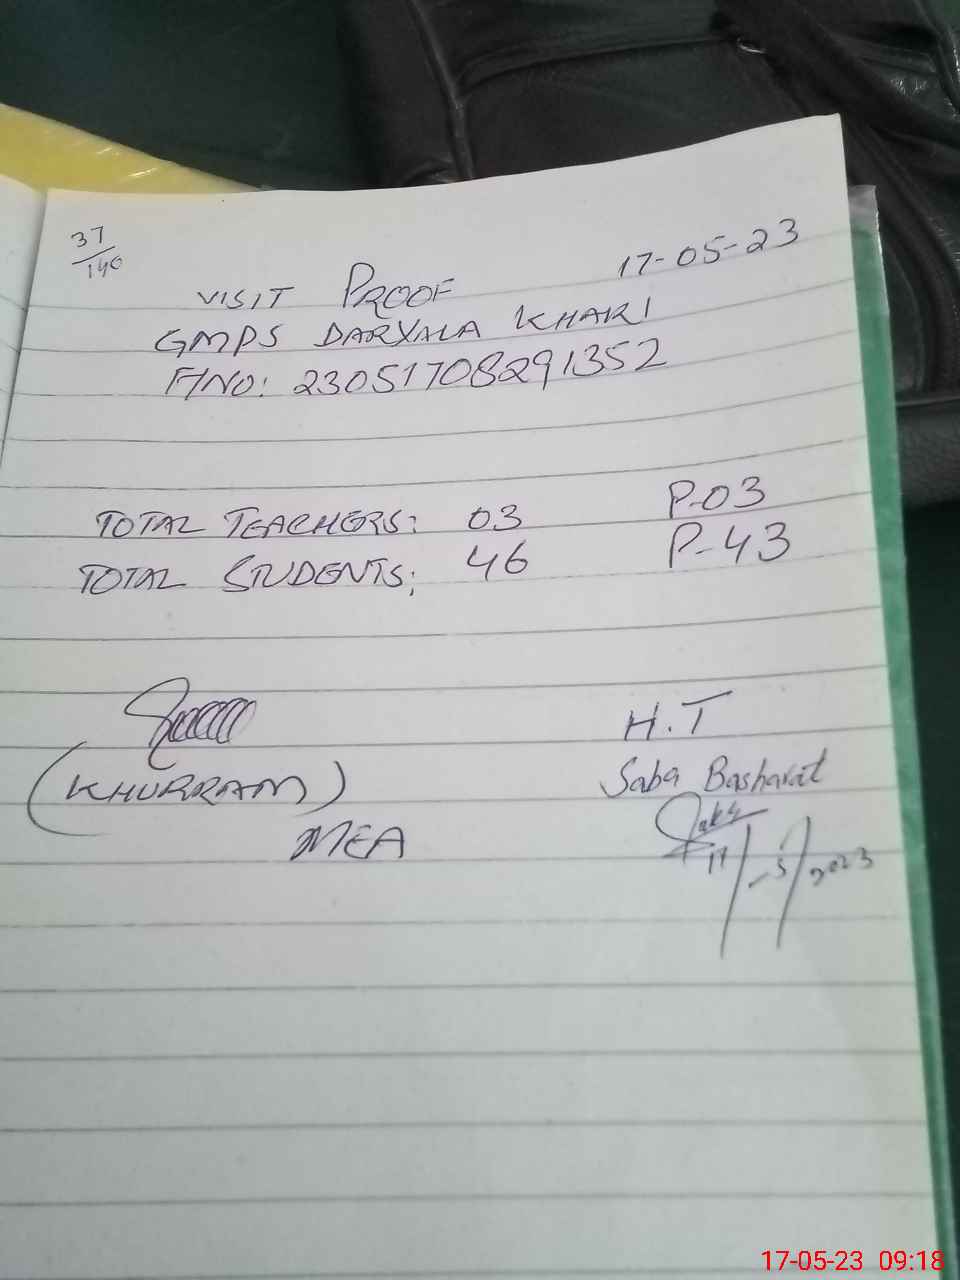 37/140
17-05-23
VISIT PROOF
GMPS DARYALA KHAKI
F/NO: 23051708291352
TOTAL TEACHERS: 03 P-03
TOTAL STUDENTS: 46 P-43
H.T
(KHURRAM) Saba Basharat
MEA
17/5/2023
17-05-23 09:18